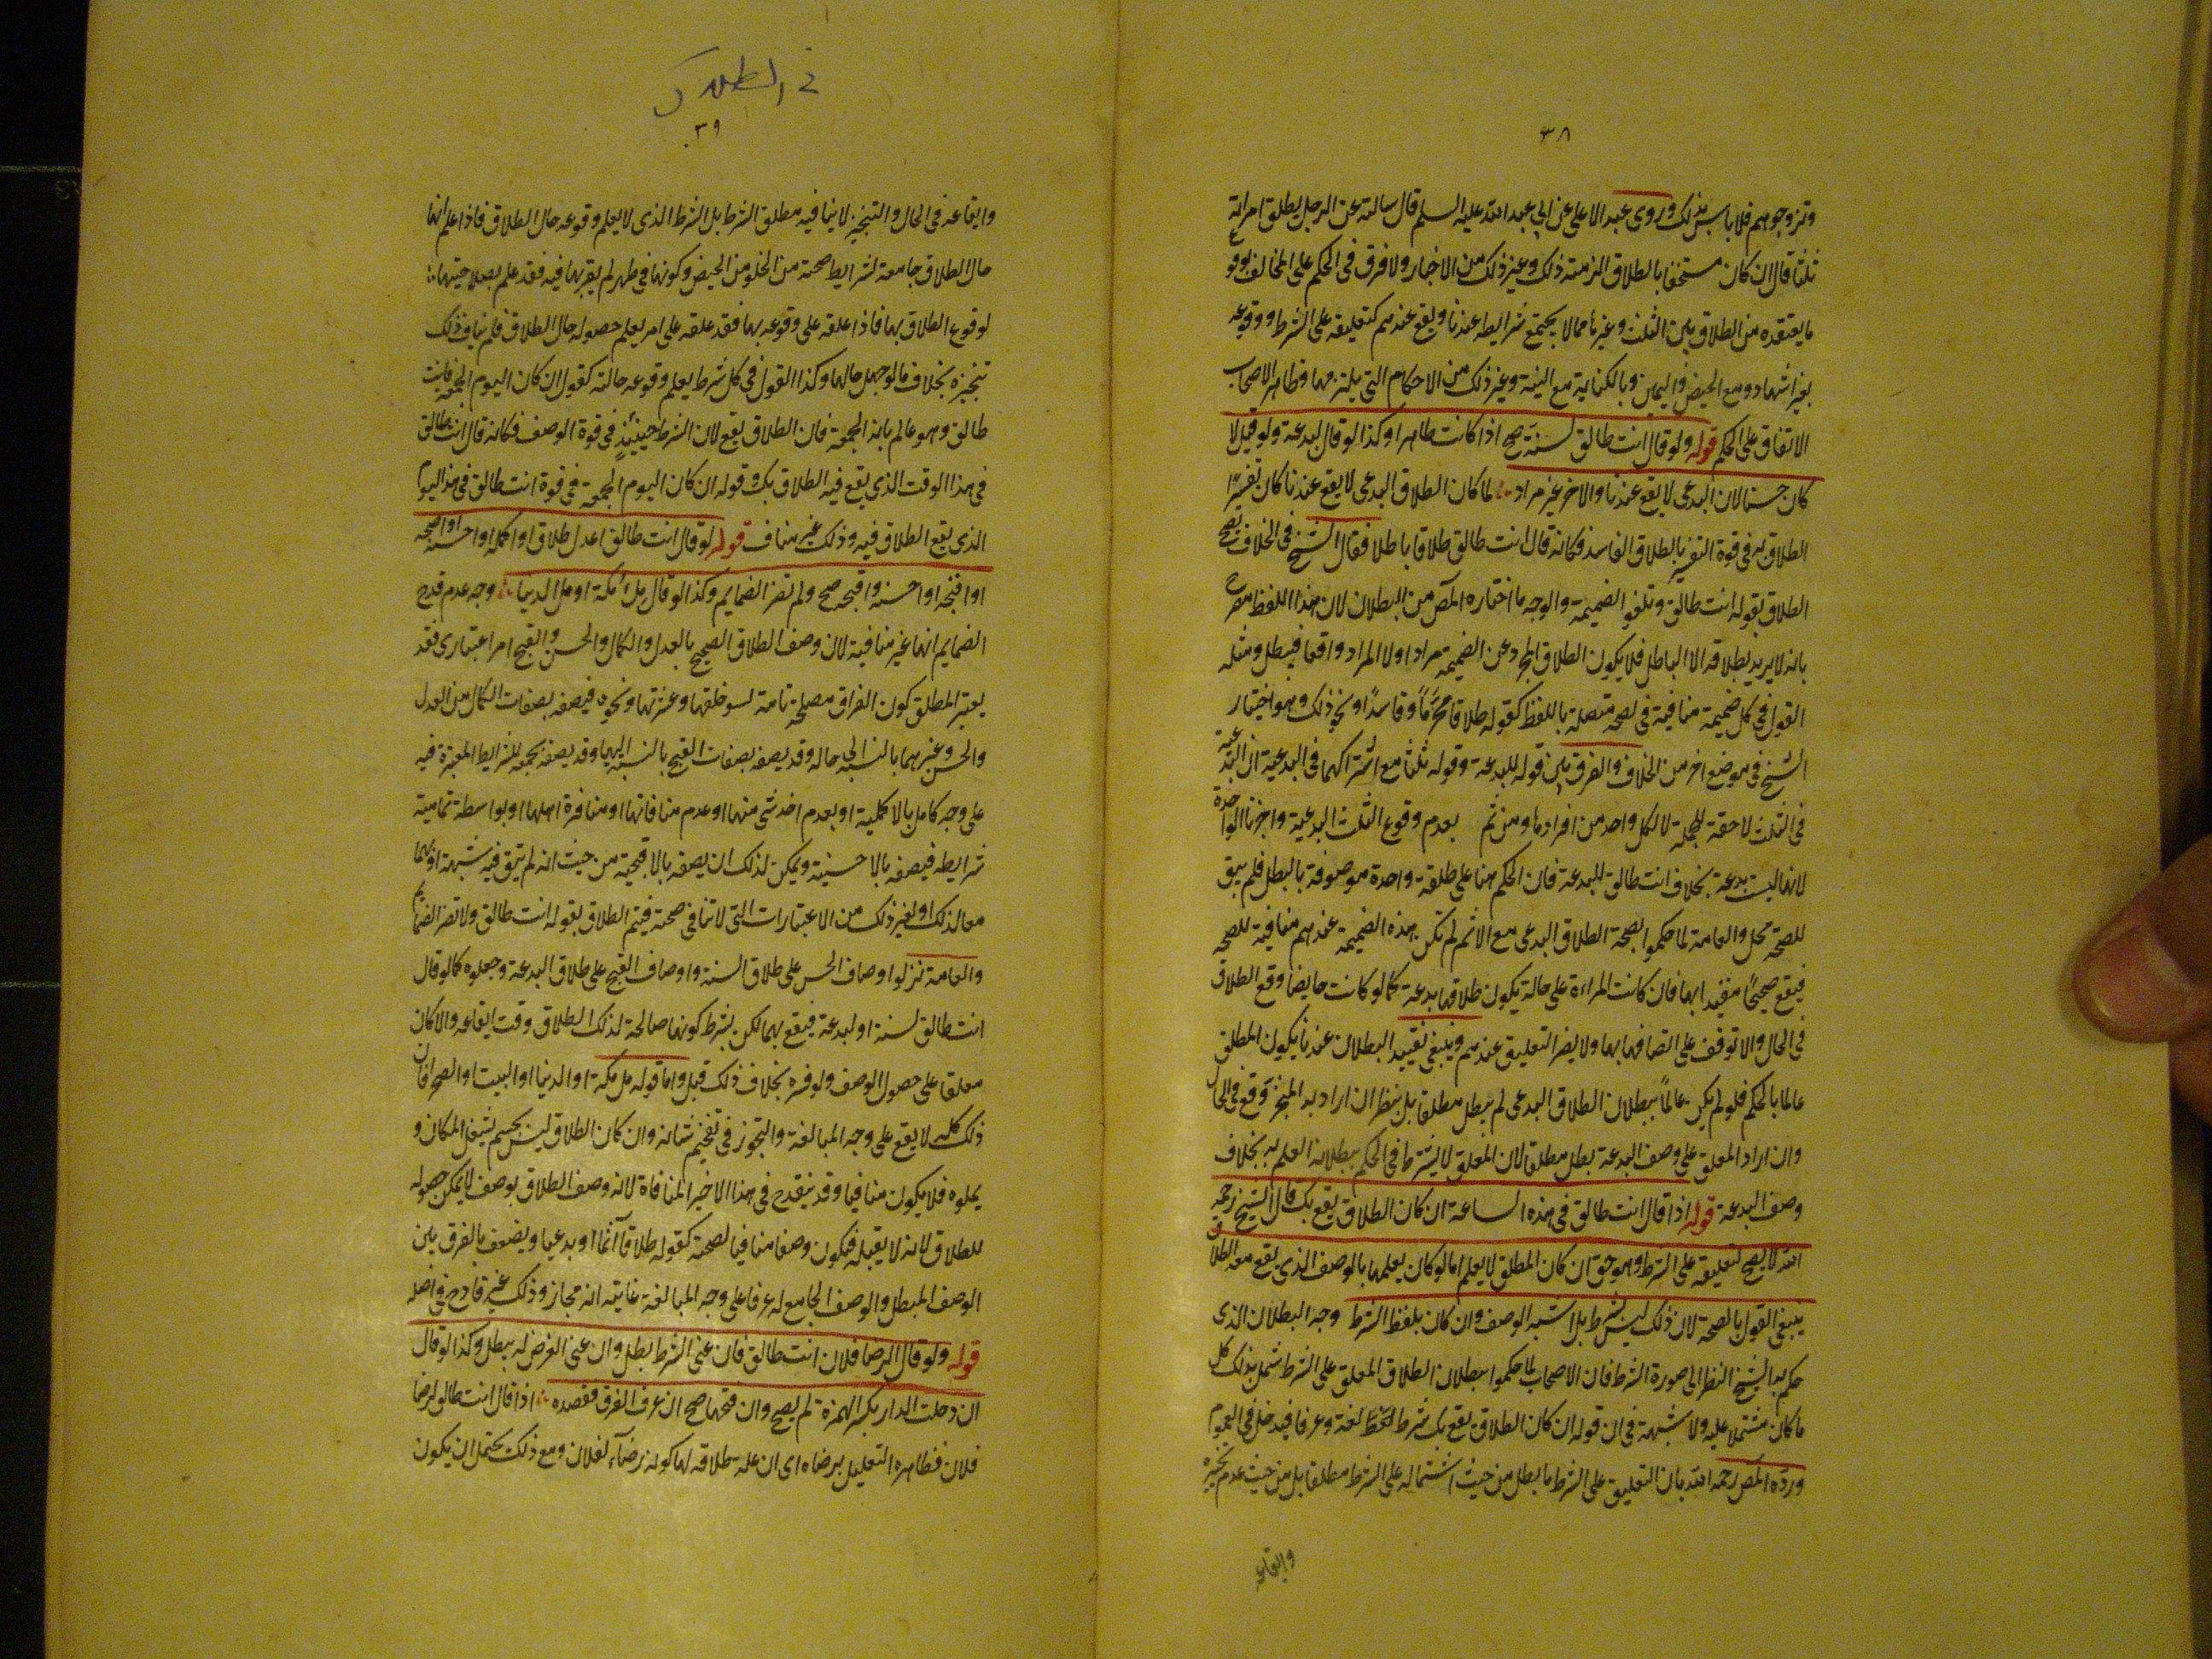 ٣٨
وتزوجوهم فلا باس بذلك وروى عبد الاعلى عن ابي عبد الله عليه السلم قال سالته عن الرجل يطلق امراته
ثلثا قال ان كان مستخفا بالطلاق الزمته ذلك وغير ذلك من الاخبار ولا فرق في الحكم على المخالف بوقوع
ما يعتقده من الطلاق بين الثلث وغيرها مما لا يجتمع شرايطه عندنا ويقع عندهم كتعليقه على الشرط ووقوعه
بغير اشهاد ومع الحيض واليمين وبالكناية مع النية وغير ذلك من الاحكام التي يلتزمها وظاهر الاصحاب
الاتفاق على الحكم قوله ولو قال انت طالق لسنة صح اذا كانت طاهرا وكذا لو قال لبدعة ولو قيل لا
كان حسنا لان البدعي لا يقع عندنا والاخر غير مراد لما كان الطلاق البدعي لا يقع عندنا كان تفسير
الطلاق به في قوة التفسير بالطلاق الفاسد فكانه قال انت طالق طلاقا باطلا فقال الشيخ في الخلاف يصح
الطلاق بقوله انت طالق وتلغو الضميمة والوجه ما اختاره المص من البطلان لان هذا اللفظ مصرح
بانه لا يريد بطلاقه الا الباطل فلا يكون الطلاق المجرد عن الضميمة مرادا ولا المراد واقعا فيبطل ومثله
القول في كل ضميمة منافية في لصحه متصلة باللفظ كقوله طلاقا محرما وفاسدا ونحو ذلك وهو اختيار
الشيخ في موضع اخر من الخلاف والفرق بين قوله للبدعة وقوله ثلثا مع اشتراكهما في البدعية ان البدعية
في الثلث لاحقة للجملة لا لكل واحد من افرادها ومن ثم بعدم وقوع الثلث البدعية واجزنا الواحدة
لانها ليست بدعة بخلاف انت طالق للبدعة فان الحكم هنا على طلقة واحدة موصوفة بالبطل فلم يبق
للصحة محل والعامة لما حكموا بصحة الطلاق البدعي مع الاثم لم تكن هذه الضميمة عندهم منافية للصحه
فيقع صحيحا مقيدا بها فان كانت المراءة على حالة يكون طلاقها بدعة كما لو كانت حايضا وقع الطلاق
في الحال والا توقف على اتصافها بها ولا يضر التعليق عندهم وينبغي تقييد البطلان عندنا بكون المطلق
عالما بالحكم فلو لم يكن عالما ببطلان الطلاق البدعي لم يبطل مطلقا بل ينظر ان اراد به المنجز وقع في الحال
وان اراد المعلق على وصف البدعة بطل مطلقا لان المعلق لا يشترط في الحكم ببطلانه العلم به بخلاف
وصف البدعة قوله اذا قال انت طالق في هذه الساعة ان كان الطلاق يقع بك قال الشيخ رحمه
الله لا يصح لتعليقه على الشرط وهو حق ان كان المطلق لا يعلم اما لو كان يعلمها بالوصف الذي يقع معه الطلاق
ينبغي القول بالصحة لان ذلك ليس بشرط بل اشبه الوصف وان كان بلفظ الشرط وجه البطلان الذي
حكم به الشيخ النظر الى صورة الشرط فان الاصحاب لما حكموا ببطلان الطلاق المعلق على الشرط شمل بذلك كل
ما كان مشتملا عليه ولا شبهة في ان قوله ان كان الطلاق يقع بك شرط لغة وعرفا فيدخل في العموم
ورده المص رحمه الله بان التعليق على الشرط ما بطل من حيث اشتماله على الشرط مطلقا بل من حيث عدم تنجيزه
وايقاعه
في الطلاق
٣٩
وايقاعه في الحال والتنجيز لا ينافيه مطلق الشرط بل الشرط الذي لا يعلم وقوعه حال الطلاق فاذا علم انها
حال الطلاق جامعة لشرايط صحته من الخلو من الحيض وكونها في طهر لم يقربها فيه فقد علم بصلاحيتها
لوقوع الطلاق بها فاذا علقه على وقوعه بها فقد علقه على امر يعلم حصوله حال الطلاق فلم يناف ذلك
تنجيزه بخلاف ما لو جهل حالها وكذا القول في كل شرط يعلم وقوعه حالته كقوله ان كان اليوم الجمعة فانت
طالق وهو عالم بانه الجمعة فان الطلاق يقع لان الشرط حينئذ في قوة الوصف فكانه قال انت طالق
في هذا الوقت الذي يقع فيه الطلاق بك وقوله ان كان اليوم الجمعة في قوة انت طالق في هذا اليوم
الذي يقع الطلاق فيه وذلك غير مناف قوله لو قال انت طالق اعدل طلاق او اكمله او احسنه او اصحه
او اقبحه او احسنه واقبحه صح ولم تضر الضمايم وكذا لو قال ملء مكة او ملء الدنيا وجه عدم قدح
الضمايم انها غير منافية لان وصف الطلاق الصحيح بالعدل والكمال والحسن والقبح امر اعتباري فقد
يعتبر المطلق كون الفراق مصلحة تامة لسو خلقها وعشرتها ونحوه فيصفه بصفات الكمال من العدل
والحسن وغيرهما بالنسبة الى حاله وقد يصفه بصفات القبح بالنسبة اليها وقد يصفه بجمعه للشرايط المعتبرة فيه
على وجه كامل بالاكملية او بعدم اخذ شي منها او عدم منافاتها او منافرة اهلها او بواسطة تمامية
شرايطه فيصفه بالاحسنية ويمكن لذلك ان يصفه بالاقبحية من حيث انه لم يبق فيه شبهة او بهما
معا لذلك او لغير ذلك من الاعتبارات التي لا تنافي صحته فيتم الطلاق بقوله انت طالق ولا تضر الضمايم
والعامة نزلوا اوصاف الحسن على طلاق السنة واوصاف القبح على طلاق البدعة وجعلوه كما لو قال
انت طالق لسنة او لبدعة فيقع بهما لكن بشرط كونها صالحة لذلك الطلاق وقت ايقاعه والا كان
معلقا على حصول الوصف ولو فسره بخلاف ذلك قبل واما قوله ملء مكة او الدنيا او البيت او الصحرا فان
ذلك كله لا يقع على وجه المبالغة والتجوز في تفخيم شانه وان كان الطلاق ليس بجسم يشغل المكان و
يملوه فلا يكون منافيا وقد ينقدح في هذا الاخير المنافاة لانه وصف الطلاق بوصف لا يمكن حصوله
للطلاق لانه لا يقبله فيكون وصفا منافيا لصحته كقوله طلاقا آثما او بدعيا ويضعف بالفرق بين
الوصف المبطل والوصف الجامع له عرفا على وجه المبالغة غايته انه مجاز وذلك غير قادح في اصله
قوله ولو قال لرضا فلان انت طالق فان عنى الشرط بطل وان عنى الغرض لم يبطل وكذا لو قال
ان دخلت الدار بكسر الهمزة لم يصح وان فتحها صح ان عرف الفرق فقصده اذا قال انت طالق لرضا
فلان فظاهره التعليل برضاه اي ان علة طلاقه لها كونه رضاء لفلان ومع ذلك يحتمل ان يكون